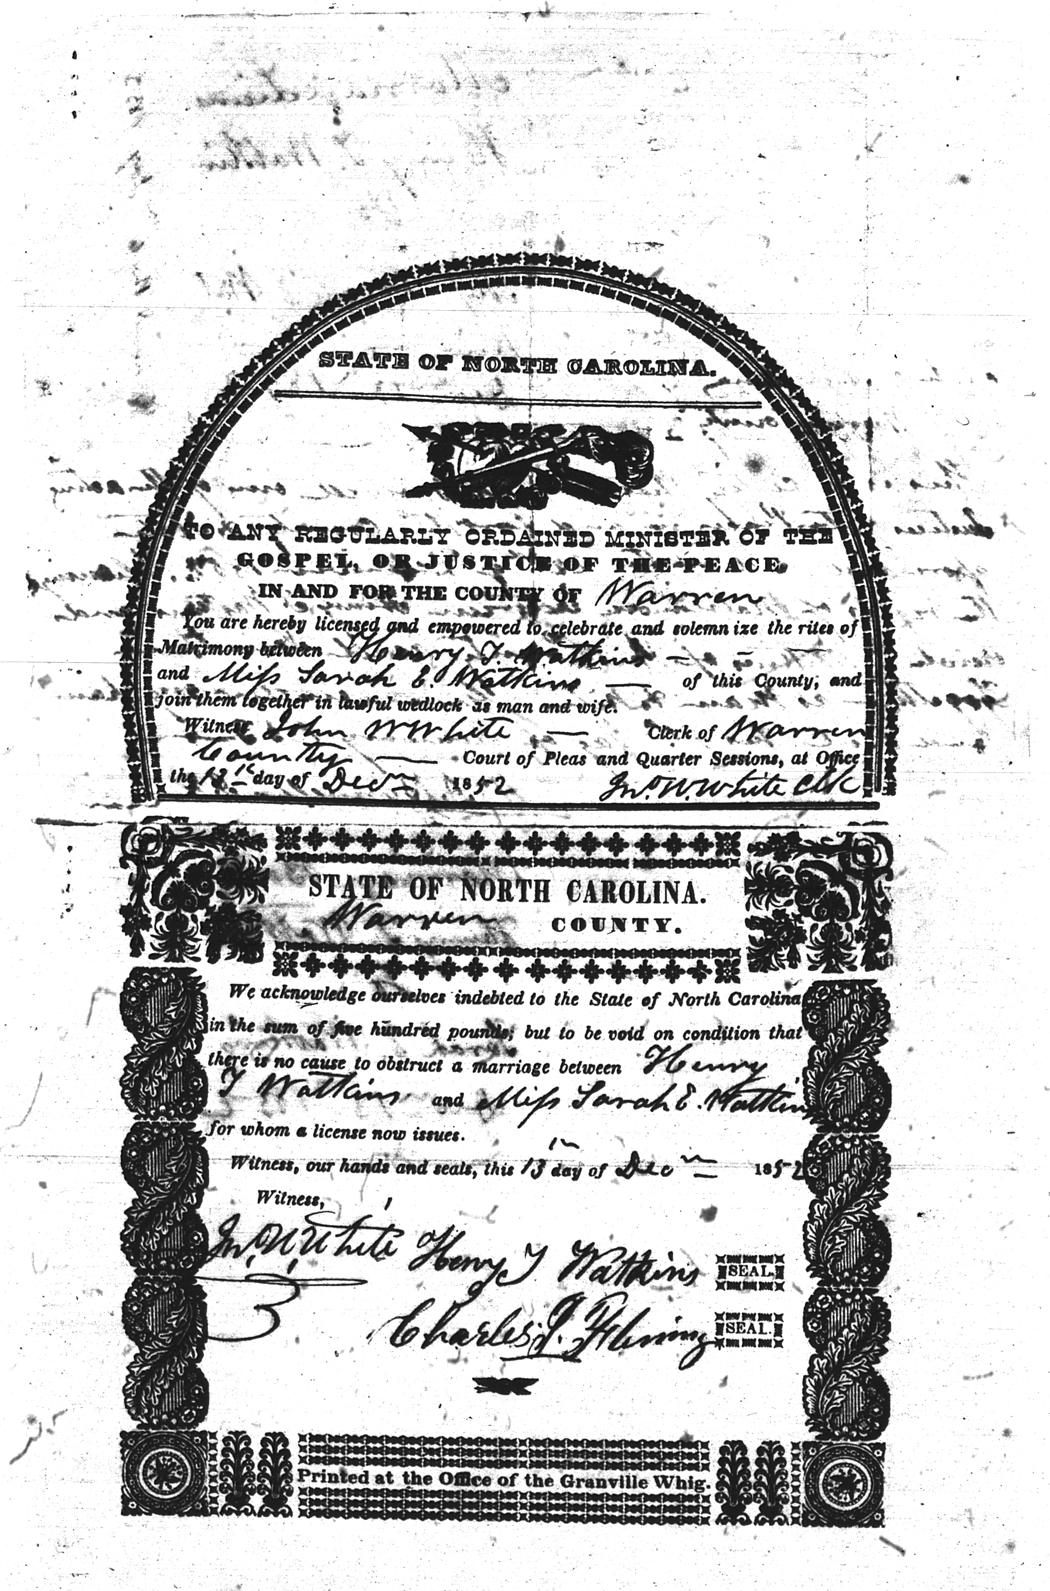 STATE OF NORTH CAROLINA.
TO ANY REGULARLY ORDAINED MINISTER OF THE
GOSPEL, OR JUSTICE OF THE PEACE
IN AND FOR THE COUNTY OF Warren
You are hereby licensed and empowered to celebrate and solemnize the rites of
Matrimony between Henry T Watkins
and Miss Sarah E. Watkins of this County, and
join them together in lawful wedlock as man and wife.
Witness John W White Clerk of Warren
County Court of Pleas and Quarter Sessions, at Office
the 13th day of Decm 1852 Jno. W. White Clk
STATE OF NORTH CAROLINA.
Warren COUNTY.
We acknowledge ourselves indebted to the State of North Carolina
in the sum of five hundred pounds; but to be void on condition that
there is no cause to obstruct a marriage between Henry
T Watkins and Miss Sarah E. Watkins
for whom a license now issues.
Witness, our hands and seals, this 13th day of Decm 1852
Witness,
Jno. W. White Henry T Watkins SEAL.
Charles Fleming SEAL.
Printed at the Office of the Granville Whig.